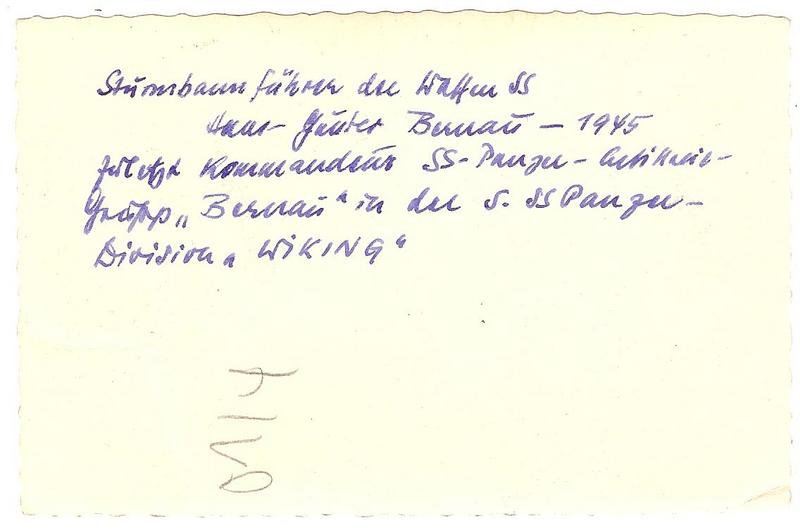 Sturmbannführer der Waffen SS
Hans-Günter Bernau – 1945
zuletzt Kommandeur SS-Panzer-Artillerie-
Grupp „Bernau“ in der 5. SS Panzer-
Division „WIKING“